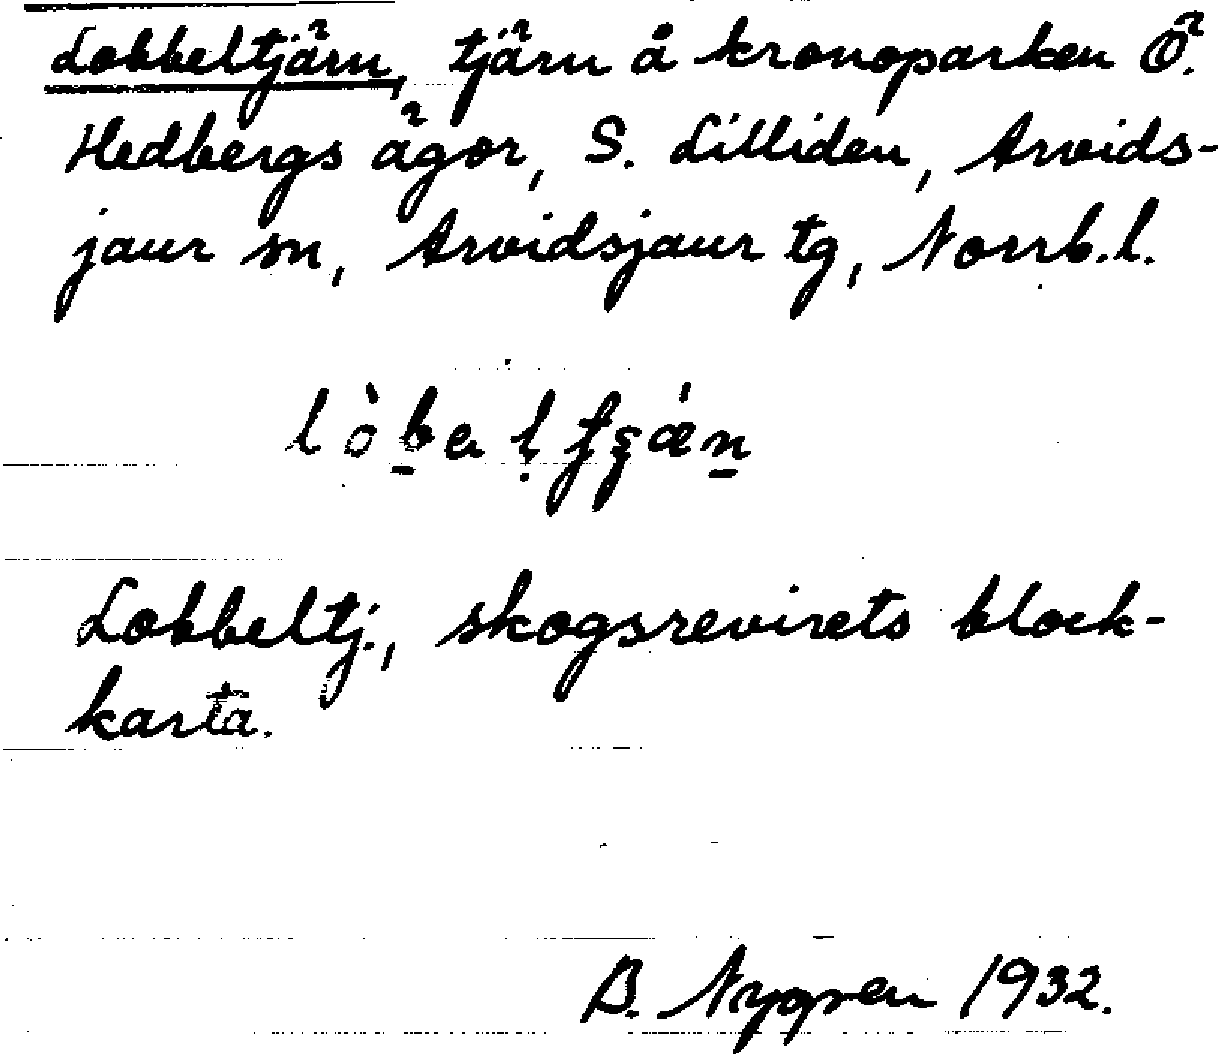 Lobbeltjärn, tjärn å kronoparken Ö.
Hedbergs ägor, S. Lilliden, Arvids-
jaur sn, Arvidsjaur tg, Norrb.l.
Lobbeltj., skogsrevirets block-
karta.
B. Nygren 1932.